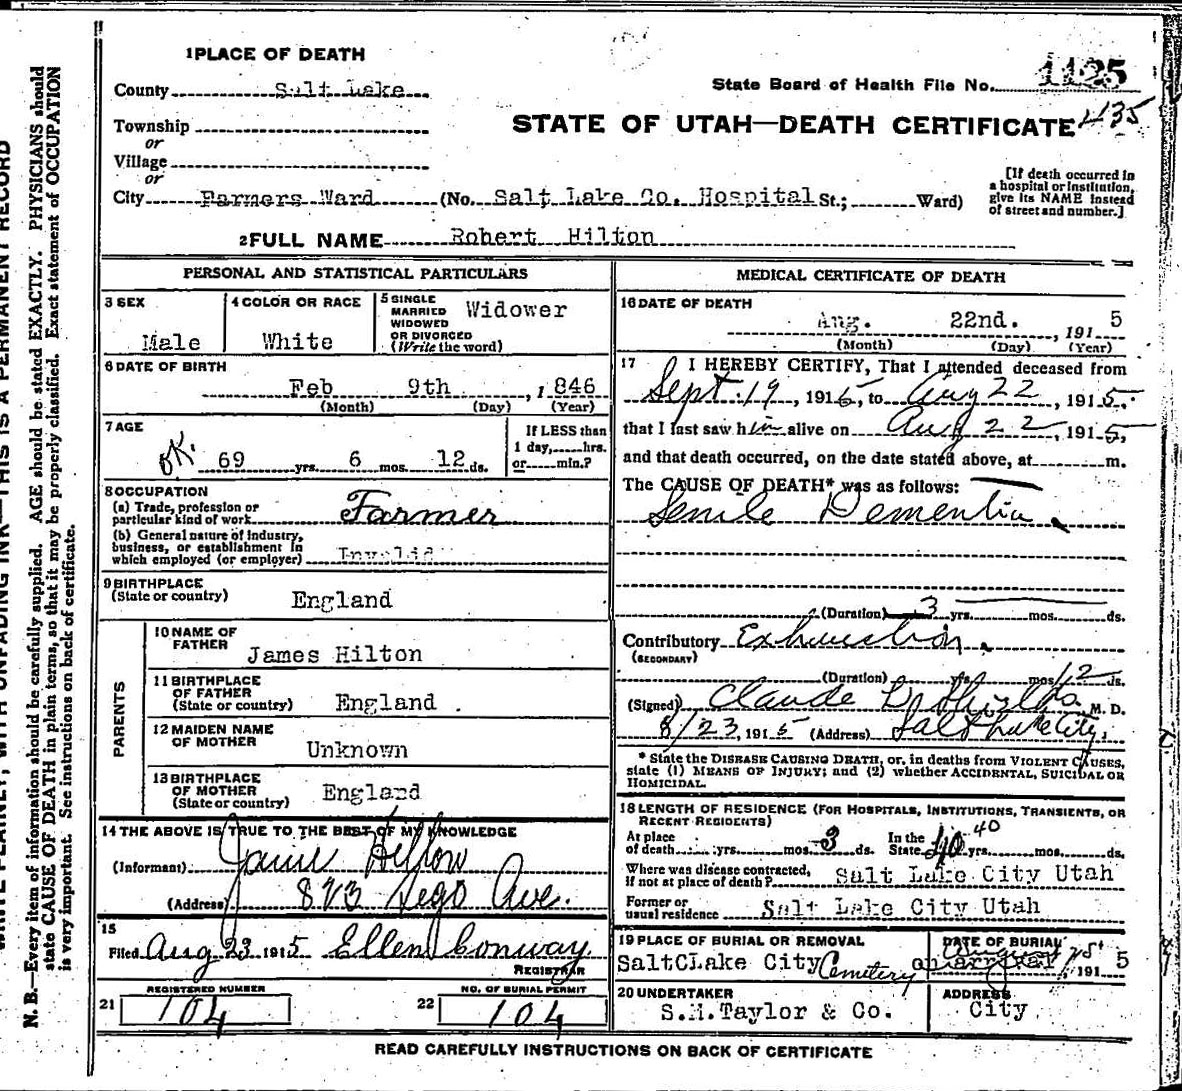 1 PLACE OF DEATH
County Salt Lake
State Board of Health File No. 1125
435
Township
or
STATE OF UTAH—DEATH CERTIFICATE
Village
or
City Farmers Ward (No. Salt Lake Co. Hospital St.; Ward)
[If death occurred in
a hospital or institution,
give its NAME instead
of street and number.]
2 FULL NAME Robert Hilton
PERSONAL AND STATISTICAL PARTICULARS
3 SEX
Male
4 COLOR OR RACE
White
5 SINGLE
MARRIED
WIDOWED
OR DIVORCED
(Write the word)
Widower
6 DATE OF BIRTH
Feb 9th , 1846
(Month) (Day) (Year)
7 AGE
OK.
69 yrs. 6 mos. 12 ds.
If LESS than
1 day, hrs.
or min.?
8 OCCUPATION
(a) Trade, profession or
particular kind of work Farmer
(b) General nature of industry,
business, or establishment in
which employed (or employer) Invalid
9 BIRTHPLACE
(State or country) England
PARENTS
10 NAME OF
FATHER James Hilton
11 BIRTHPLACE
OF FATHER
(State or country) England
12 MAIDEN NAME
OF MOTHER Unknown
13 BIRTHPLACE
OF MOTHER
(State or country) England
14 THE ABOVE IS TRUE TO THE BEST OF MY KNOWLEDGE
(Informant)
(Address) Sego Ave.
15
Filed Aug 23 1915 Ellen Conway
REGISTRAR
REGISTERED NUMBER
21 104
NO. OF BURIAL PERMIT
22 104
MEDICAL CERTIFICATE OF DEATH
16 DATE OF DEATH
Aug. 22nd. , 1915
(Month) (Day) (Year)
17 I HEREBY CERTIFY, That I attended deceased from
Sept. 19 , 1915, to Aug 22 , 1915,
that I last saw him alive on Aug 22 , 1915,
and that death occurred, on the date stated above, at m.
The CAUSE OF DEATH* was as follows:
Senile Dementia
(Duration) 3 yrs. mos. ds.
Contributory Exhaustion.
(SECONDARY)
(Duration) yrs. mos. 12 ds.
(Signed) Claude M. D.
8/23, 1915 (Address) Salt Lake City.
* State the DISEASE CAUSING DEATH, or, in deaths from VIOLENT CAUSES,
state (1) MEANS OF INJURY; and (2) whether ACCIDENTAL, SUICIDAL OR
HOMICIDAL.
18 LENGTH OF RESIDENCE (FOR HOSPITALS, INSTITUTIONS, TRANSIENTS, OR
RECENT RESIDENTS)
At place
of death yrs. mos. 3 ds.
In the
State 40 40 yrs. mos. ds.
Where was disease contracted,
if not at place of death? Salt Lake City Utah
Former or
usual residence Salt Lake City Utah
19 PLACE OF BURIAL OR REMOVAL
SaltCLake City Cemetery
DATE OF BURIAL
on arrival 1915
20 UNDERTAKER
S.M.Taylor & Co.
ADDRESS
City
READ CAREFULLY INSTRUCTIONS ON BACK OF CERTIFICATE
N. B.—Every item of information should be carefully supplied. AGE should be stated EXACTLY. PHYSICIANS should
state CAUSE OF DEATH in plain terms, so that it may be properly classified. Exact statement of OCCUPATION
is very important. See instructions on back of certificate.
WRITE PLAINLY, WITH UNFADING INK—THIS IS A PERMANENT RECORD